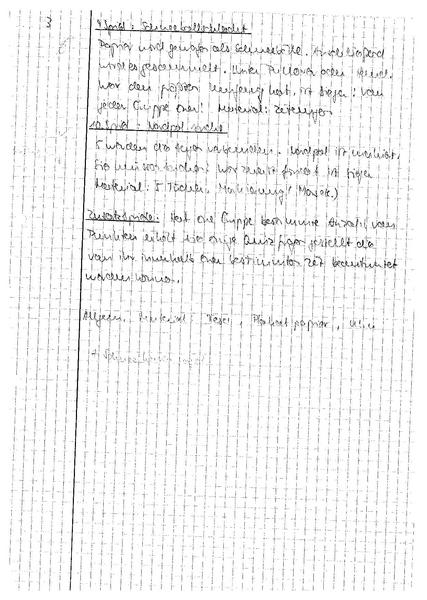 3
9. Spiel: Schneeballschlacht
Papier wird geworfen als Schneebälle. Anschließend
wird es gesammelt. Unter Pullover oder Hemd.
Wer den größten Umfang hat, ist Sieger! Von
jeder Gruppe einer! Material: Zeitungen
10. Spiel: Nordpol suche
5 werden die Augen verbunden. Nordpol ist markiert.
Sie müssen suchen: wer zuerst findet ist Sieger
Material: 5 Tücher, Markierung!
Zusatzspiele: Hat eine Gruppe bestimmte Anzahl von
Punkten erhält sie einige Quizfragen gestellt die
von ihr innerhalb einer bestimmten Zeit beantwortet
werden können.
Allgem. Material: Plakatpapier,